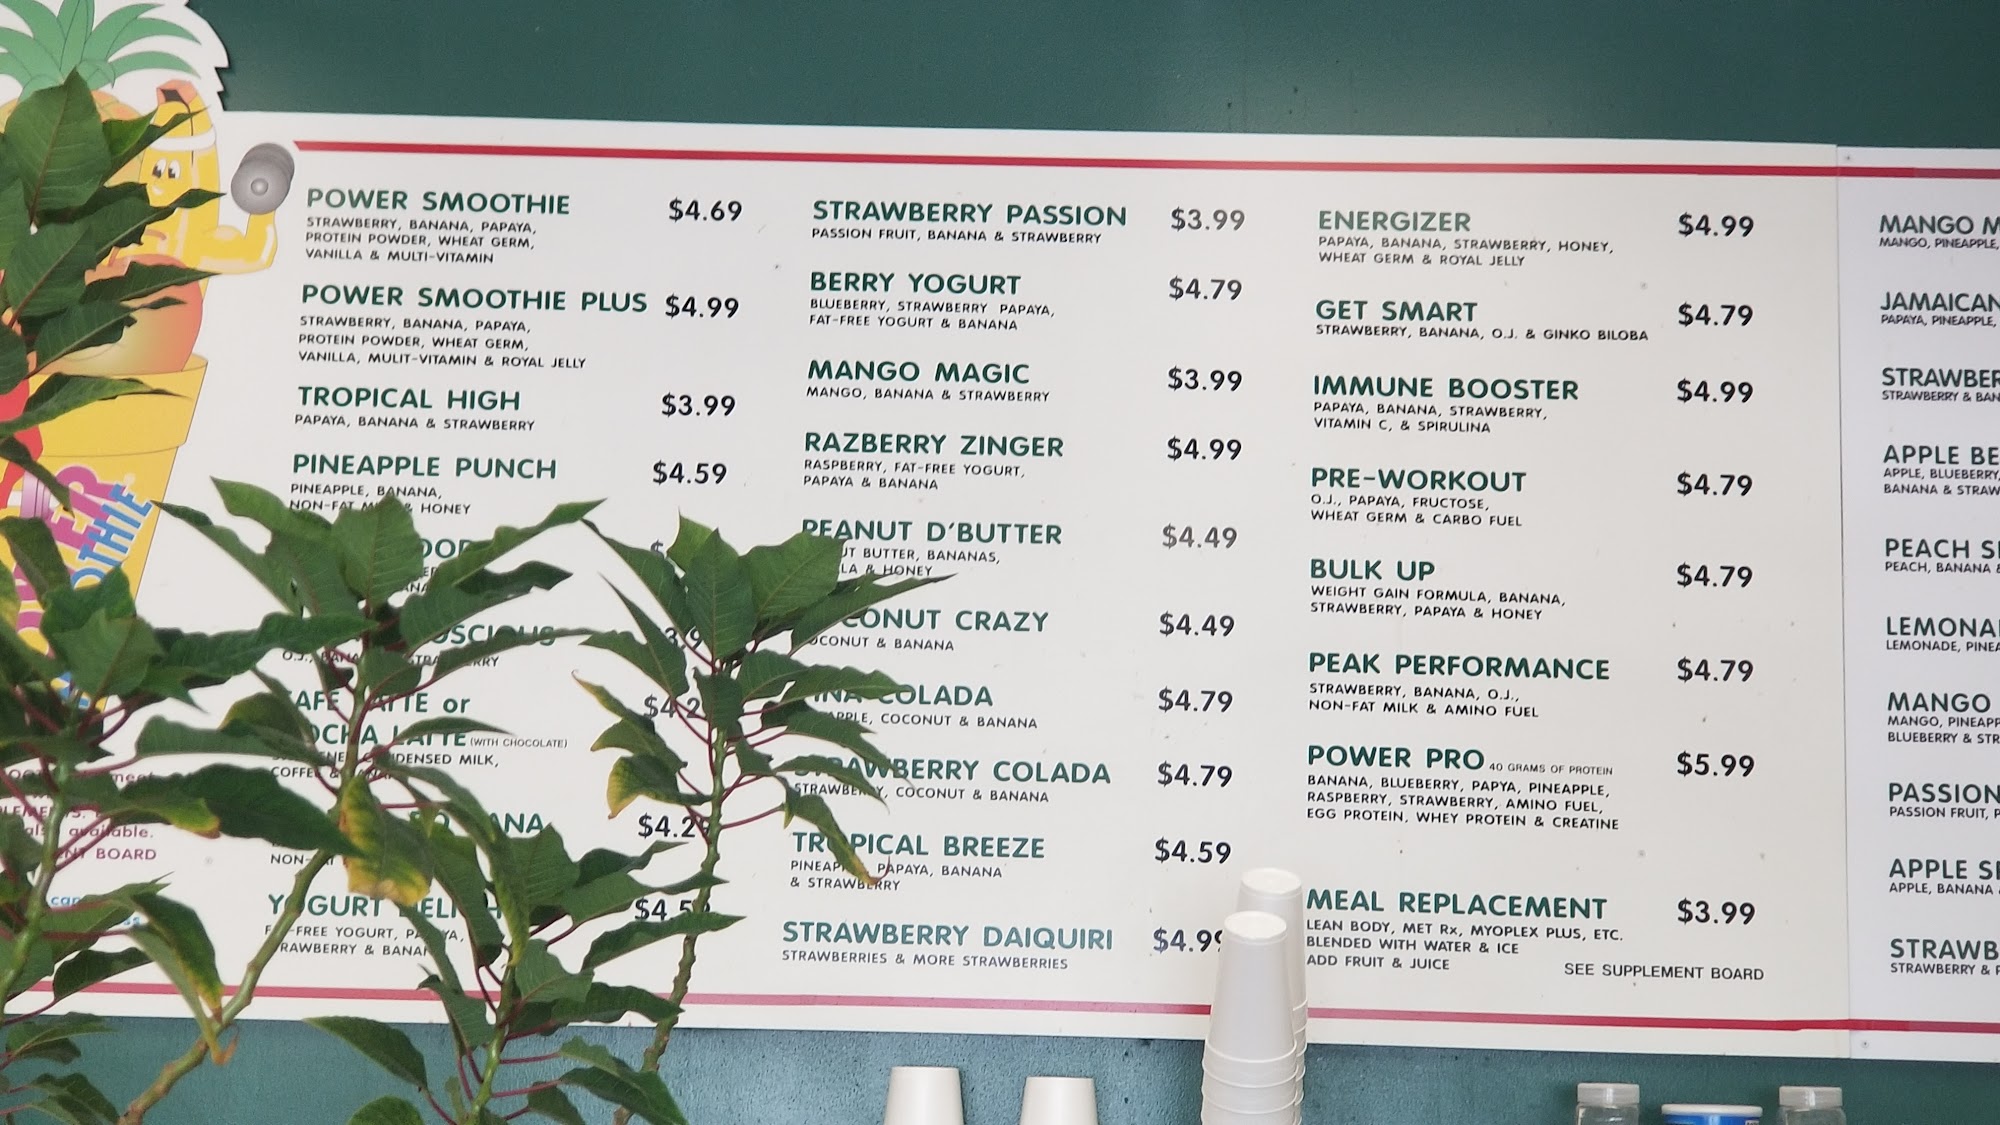 POWER SMOOTHIE $4.69
STRAWBERRY, BANANA, PAPAYA,
PROTEIN POWDER, WHEAT GERM,
VANILLA & MULTI-VITAMIN
POWER SMOOTHIE PLUS $4.99
STRAWBERRY, BANANA, PAPAYA,
PROTEIN POWDER, WHEAT GERM,
VANILLA, MULIT-VITAMIN & ROYAL JELLY
TROPICAL HIGH $3.99
PAPAYA, BANANA & STRAWBERRY
PINEAPPLE PUNCH $4.59
PINEAPPLE, BANANA,
NON-FAT & HONEY
O.J.,
or
(WITH CHOCOLATE)
MILK,
COFFEE &
YOGURT
YOGURT, 
& 
STRAWBERRY PASSION $3.99
PASSION FRUIT, BANANA & STRAWBERRY
BERRY YOGURT $4.79
BLUEBERRY, STRAWBERRY PAPAYA,
FAT-FREE YOGURT & BANANA
MANGO MAGIC $3.99
MANGO, BANANA & STRAWBERRY
RAZBERRY ZINGER $4.99
RASPBERRY, FAT-FREE YOGURT,
PAPAYA & BANANA
PEANUT D'BUTTER $4.49
BUTTER, BANANAS,
& HONEY
CRAZY $4.49
& BANANA
COLADA $4.79
COCONUT & BANANA
STRAWBERRY COLADA $4.79
STRAWBERRY, COCONUT & BANANA
TROPICAL BREEZE $4.59
PAPAYA, BANANA
& STRAWBERRY
STRAWBERRY DAIQUIRI $4.99
STRAWBERRIES & MORE STRAWBERRIES
ENERGIZER $4.99
PAPAYA, BANANA, STRAWBERRY, HONEY,
WHEAT GERM & ROYAL JELLY
GET SMART $4.79
STRAWBERRY, BANANA, O.J. & GINKO BILOBA
IMMUNE BOOSTER $4.99
PAPAYA, BANANA, STRAWBERRY,
VITAMIN C, & SPIRULINA
PRE-WORKOUT $4.79
O.J., PAPAYA, FRUCTOSE,
WHEAT GERM & CARBO FUEL
BULK UP $4.79
WEIGHT GAIN FORMULA, BANANA,
STRAWBERRY, PAPAYA & HONEY
PEAK PERFORMANCE $4.79
STRAWBERRY, BANANA, O.J.,
NON-FAT MILK & AMINO FUEL
POWER PRO 40 GRAMS OF PROTEIN $5.99
BANANA, BLUEBERRY, PAPYA, PINEAPPLE,
RASPBERRY, STRAWBERRY, AMINO FUEL,
EGG PROTEIN, WHEY PROTEIN & CREATINE
MEAL REPLACEMENT $3.99
LEAN BODY, MET Rx, MYOPLEX PLUS, ETC.
BLENDED WITH WATER & ICE
ADD FRUIT & JUICE
SEE SUPPLEMENT BOARD
MANGO
MANGO, PINEAPPLE,
JAMAICAN
PAPAYA, PINEAPPLE,
STRAWBERRY &
APPLE
APPLE, BLUEBERRY,
BANANA &
PEACH
PEACH, BANANA
LEMONADE,
MANGO
MANGO,
BLUEBERRY &
PASSION
PASSION FRUIT,
APPLE
APPLE, BANANA
STRAWBERRY &
available.
BOARD